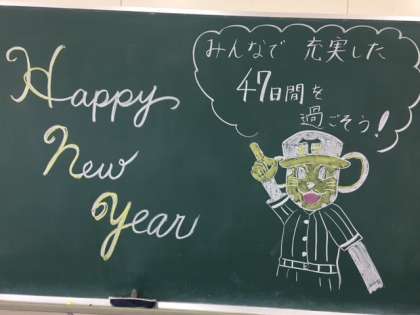 Happy
New
Year
みんなで 充実した
47日間を
過ごそう!